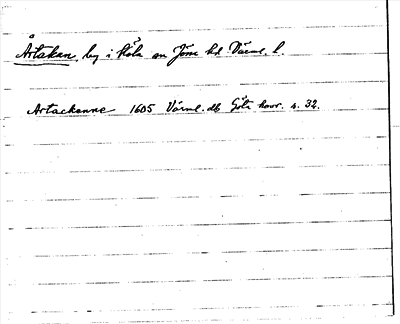 Årtakan, by i Köla sn Jösse hd Värml. l.
Artackanne 1605 Värml. db Göta hovr. s. 32.